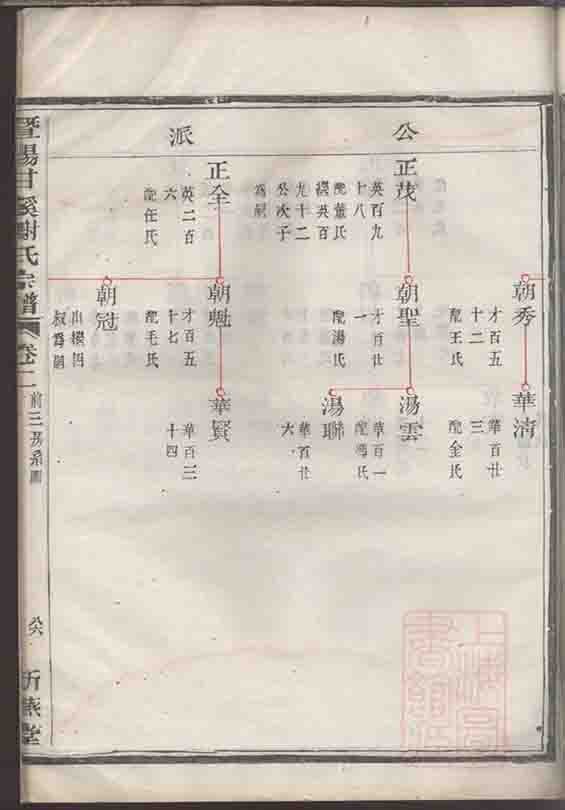 公
派
朝秀
才百五
十二
配王氏
華淸
華百廿
三
配金氏
正茂
英百九
十八
配葉氏
繼英百
九十二
公次子
爲嗣
朝聖
才百廿
一
配湯氏
湯雲
華百一
湯聯
華百廿
六
正全
英二百
六
配任氏
朝魁
才百五
十七
配毛氏
華賢
華百二
十四
朝冠
出繼四
叔爲嗣
暨陽甘溪謝氏宗譜
卷二
前三房系圖